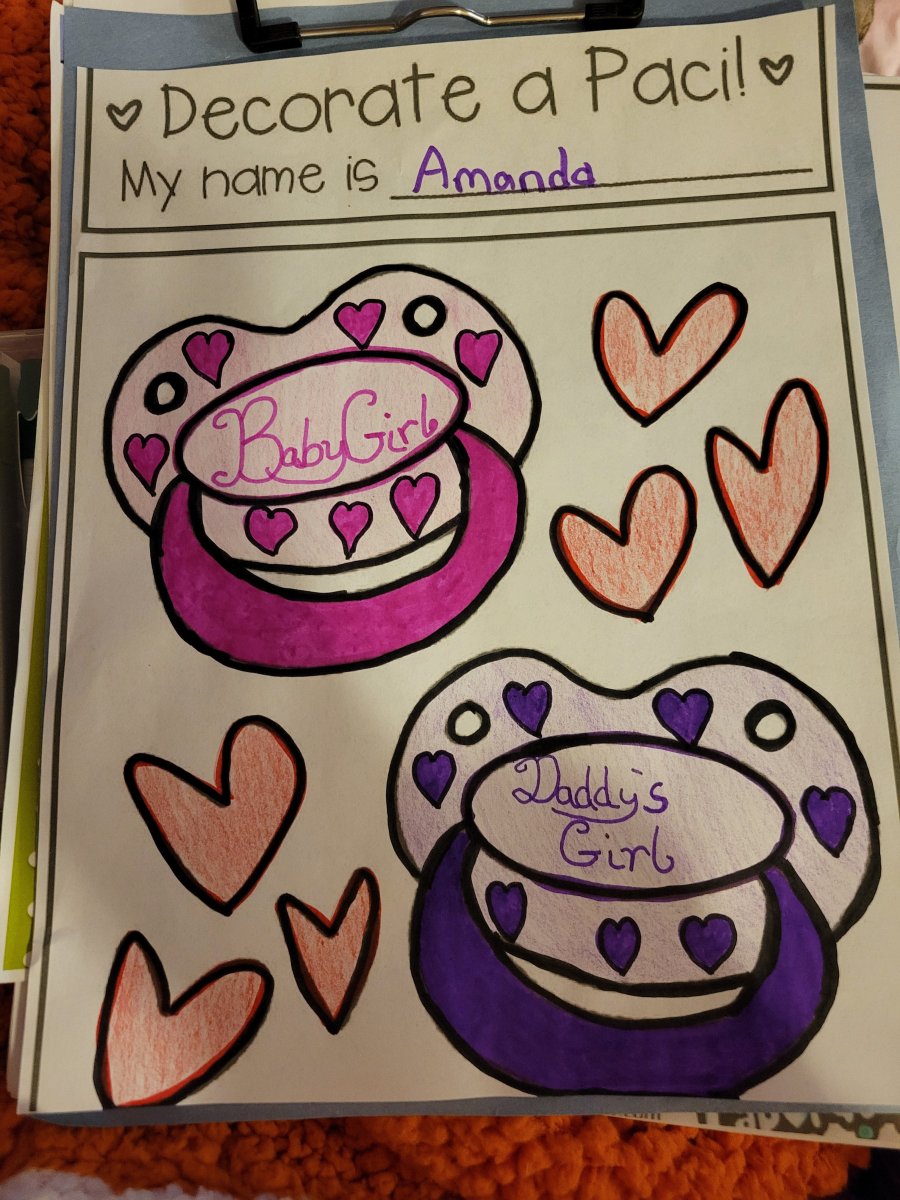 Decorate a Paci!
My name is Amanda
BabyGirl
Daddy's
Girl